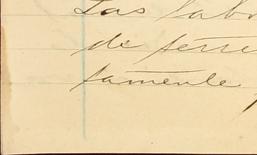 Las labo
de terre
tamente